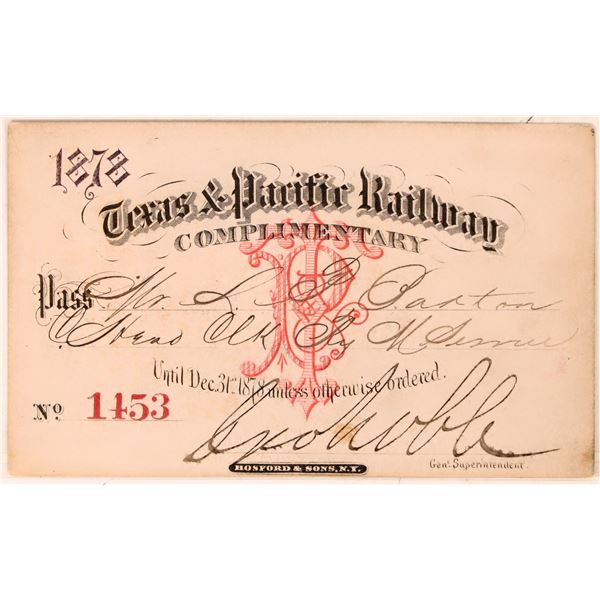 1878
Texas & Pacific Railway
COMPLIMENTARY
TP
Pass Mr. L. P. Paxton
Head Clk Ry M Service
Until Dec. 31st 1878 unless otherwise ordered.
No 1453
Geo Noble
Genl. Superintendent.
HOSFORD & SONS, N.Y.